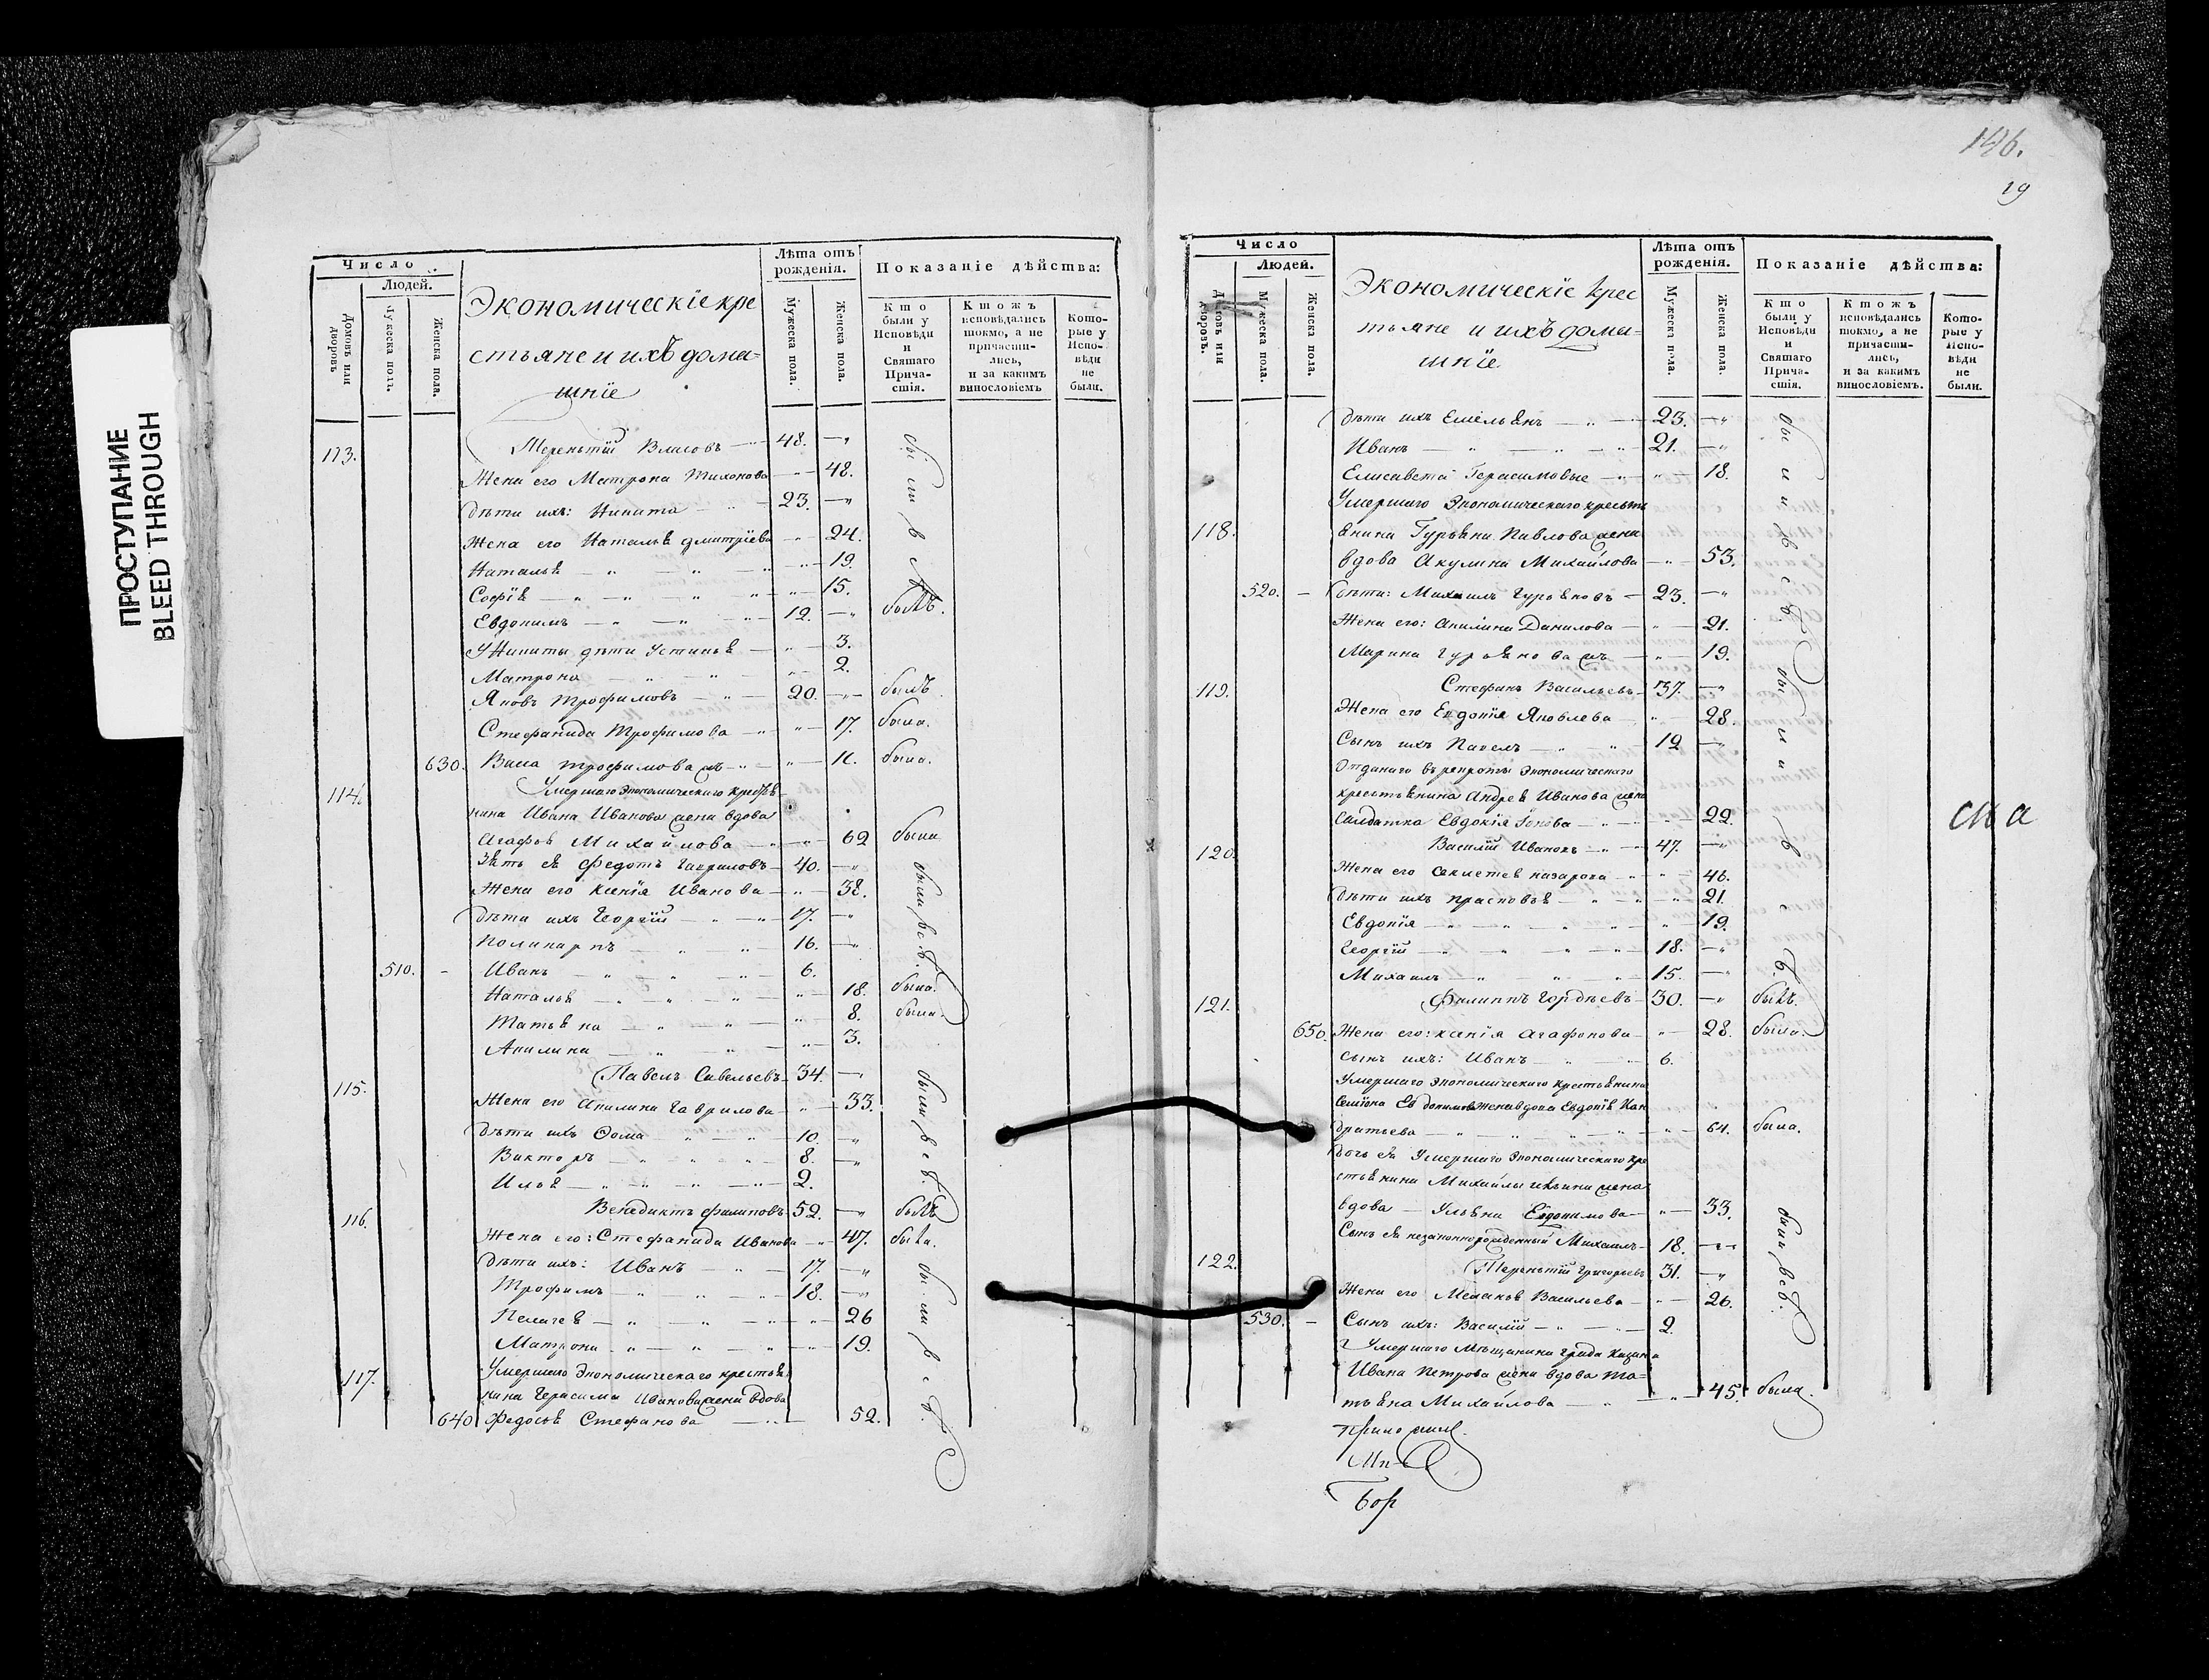 ПРОСТУПАНИЕ
BLEED THROUGH
Число
Людей.
Домовъ или дворовъ
Мужеска полъ.
Женска пола.
Экономическіе кре
стьяне и ихъ дома=
шніе
Лѣта отъ рожденія.
Мужеска пола.
Женска пола.
Показаніе дѣйства:
Кто были у Исповѣди и Святаго Прича-стія.
Ктожъ исповѣдались токмо, а не причасти-лись, и за какимъ винословіемъ
Кото-рые у Испо-вѣди не были.
113. Терентій Власовъ — 48. — "
Жена его Матрона Тихонова — " — 48.
Дѣти ихъ: Никита — 23. — "
Жена его Наталья Дмитріева — " — 24.
Наталья — " — " — 19.
Софія — " — " — 15.
Евдокимъ — " — 12. — " былъ.
У Никиты дѣти Устинья — " — 3.
Матрона — " — 2.
были всѣ
Яковъ Трофимовъ — " — 20. — " — былъ.
Стефанида Трофимова — " — 17. была.
630. Васса Трофимова — " — 11. была.
114. Умершаго Экономическаго крестья
нина Ивана Иванова жена вдова
Агафья Михайлова — " — 62 была
Зять ея Федотъ Гавриловъ — 40. — "
Жена его Ксенія Иванова — " — 38.
Дѣти ихъ Георгій — " — 17. — "
Поликарпъ — " — 16. — "
были всѣ.
510. — Иванъ — " — 6.
Наталья — " — 18. была.
Татьяна — " — 8. была.
Акилина — " — 3.
115. Павелъ Савельевъ — 34. — "
Жена его Акилина Гаврилова — " — 33.
Дѣти ихъ Ѳома — 10. — "
Викторъ — " — 8. — "
Илья — " — 2.
были всѣ.
116. Венедиктъ Филиповъ — 52. — " былъ
Жена его: Стефанида Иванова — " 47. была.
Дѣти ихъ: Иванъ — " — 17. — "
Трофимъ — " — 18. — "
Пелагея — " — " — 26
Матрона — " — " — 19.
117. Умершаго Экономическаго крестья
нина Герасима Иванова жена вдова
640 Федосья Стефанова — 52.
были всѣ.
146.
19
Число
Людей.
Домовъ или дворовъ.
Мужеска пола.
Женска пола.
Экономическіе крес
тьяне и ихъ дома=
шніе.
Лѣта отъ рожденія.
Мужеска пола.
Женска пола.
Показаніе дѣйства:
Кто были у Исповѣди и Святаго Прича-стія.
Ктожъ исповѣдались токмо, а не причасти-лись, и за какимъ винословіемъ.
Кото-рые у Испо-вѣди не были.
Дѣти ихъ Емельянъ — " — 23. — "
Иванъ — " — " — 21. — "
Елисавета Герасимовые — " — 18.
Умершаго Экономическаго кресть
118. янина Гурьяна Павлова жена
вдова Акулина Михайлова — " — 53.
520. — Дѣти: Михаилъ Гурьяновъ — 23. — "
Жена его: Акилина Данилова — " — 21.
Марина Гурьянова — " — 19.
были всѣ.
119. Стефанъ Васильевъ — 37. — "
Жена его Евдокія Яковлева — " — 28.
Сынъ ихъ Павелъ — " — 12 — "
Отданаго въ рекроты Экономическаго
крестьянина Андрея Иванова жена
солдатка Евдокія — " — 22.
120. Василій Ивановъ — " — 47. — "
Жена его Назарова — " — 46.
Дѣти ихъ Прасковья — " — 21.
Евдокія — " — " — 19.
Георгій — " — " — 18. — "
Михаилъ — " — " — 15. — "
были всѣ.
сна
121. Филиппъ Гордѣевъ — 30. — " былъ.
650. Жена его: Ксенія Агафонова — " — 28. была.
Сынъ ихъ: Иванъ — " — 6.
Умершаго Экономическаго крестьянина
Семіона Евдокимова жена вдова Евдокія Кон
дратьева — " — " — 64. была.
Дочь ея Умершаго Экономическаго кре
стьянина Михайлы Ильина жена
вдова — Ульяна Евдокимова — " — 33.
Сынъ ея незаконнорожденный Михаилъ — 18. — "
122. Терентій Григорьевъ 31. — "
Жена его Меланья Васильева — " — 26.
530. — Сынъ ихъ: Василій — " — 2.
были всѣ.
Умершаго Мѣщанина града Казани
Ивана Петрова жена вдова Та=
тьяна Михайлова — " — 45. была.